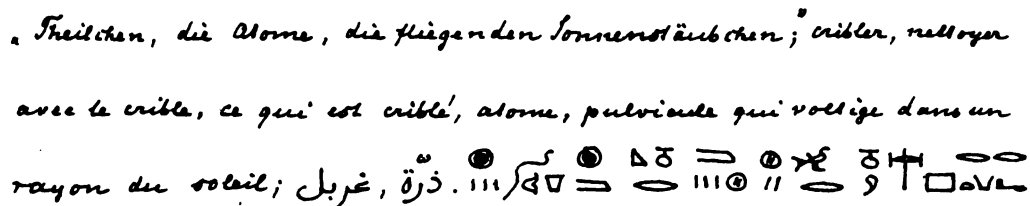 „Theilchen, die Atome, die fliegenden Sonnenstäubchen;" cribler, nettoyer
avec le crible, ce qui est criblé, atome, pulvicule qui voltige dans un
rayon du soleil; غربل, ذرّة.